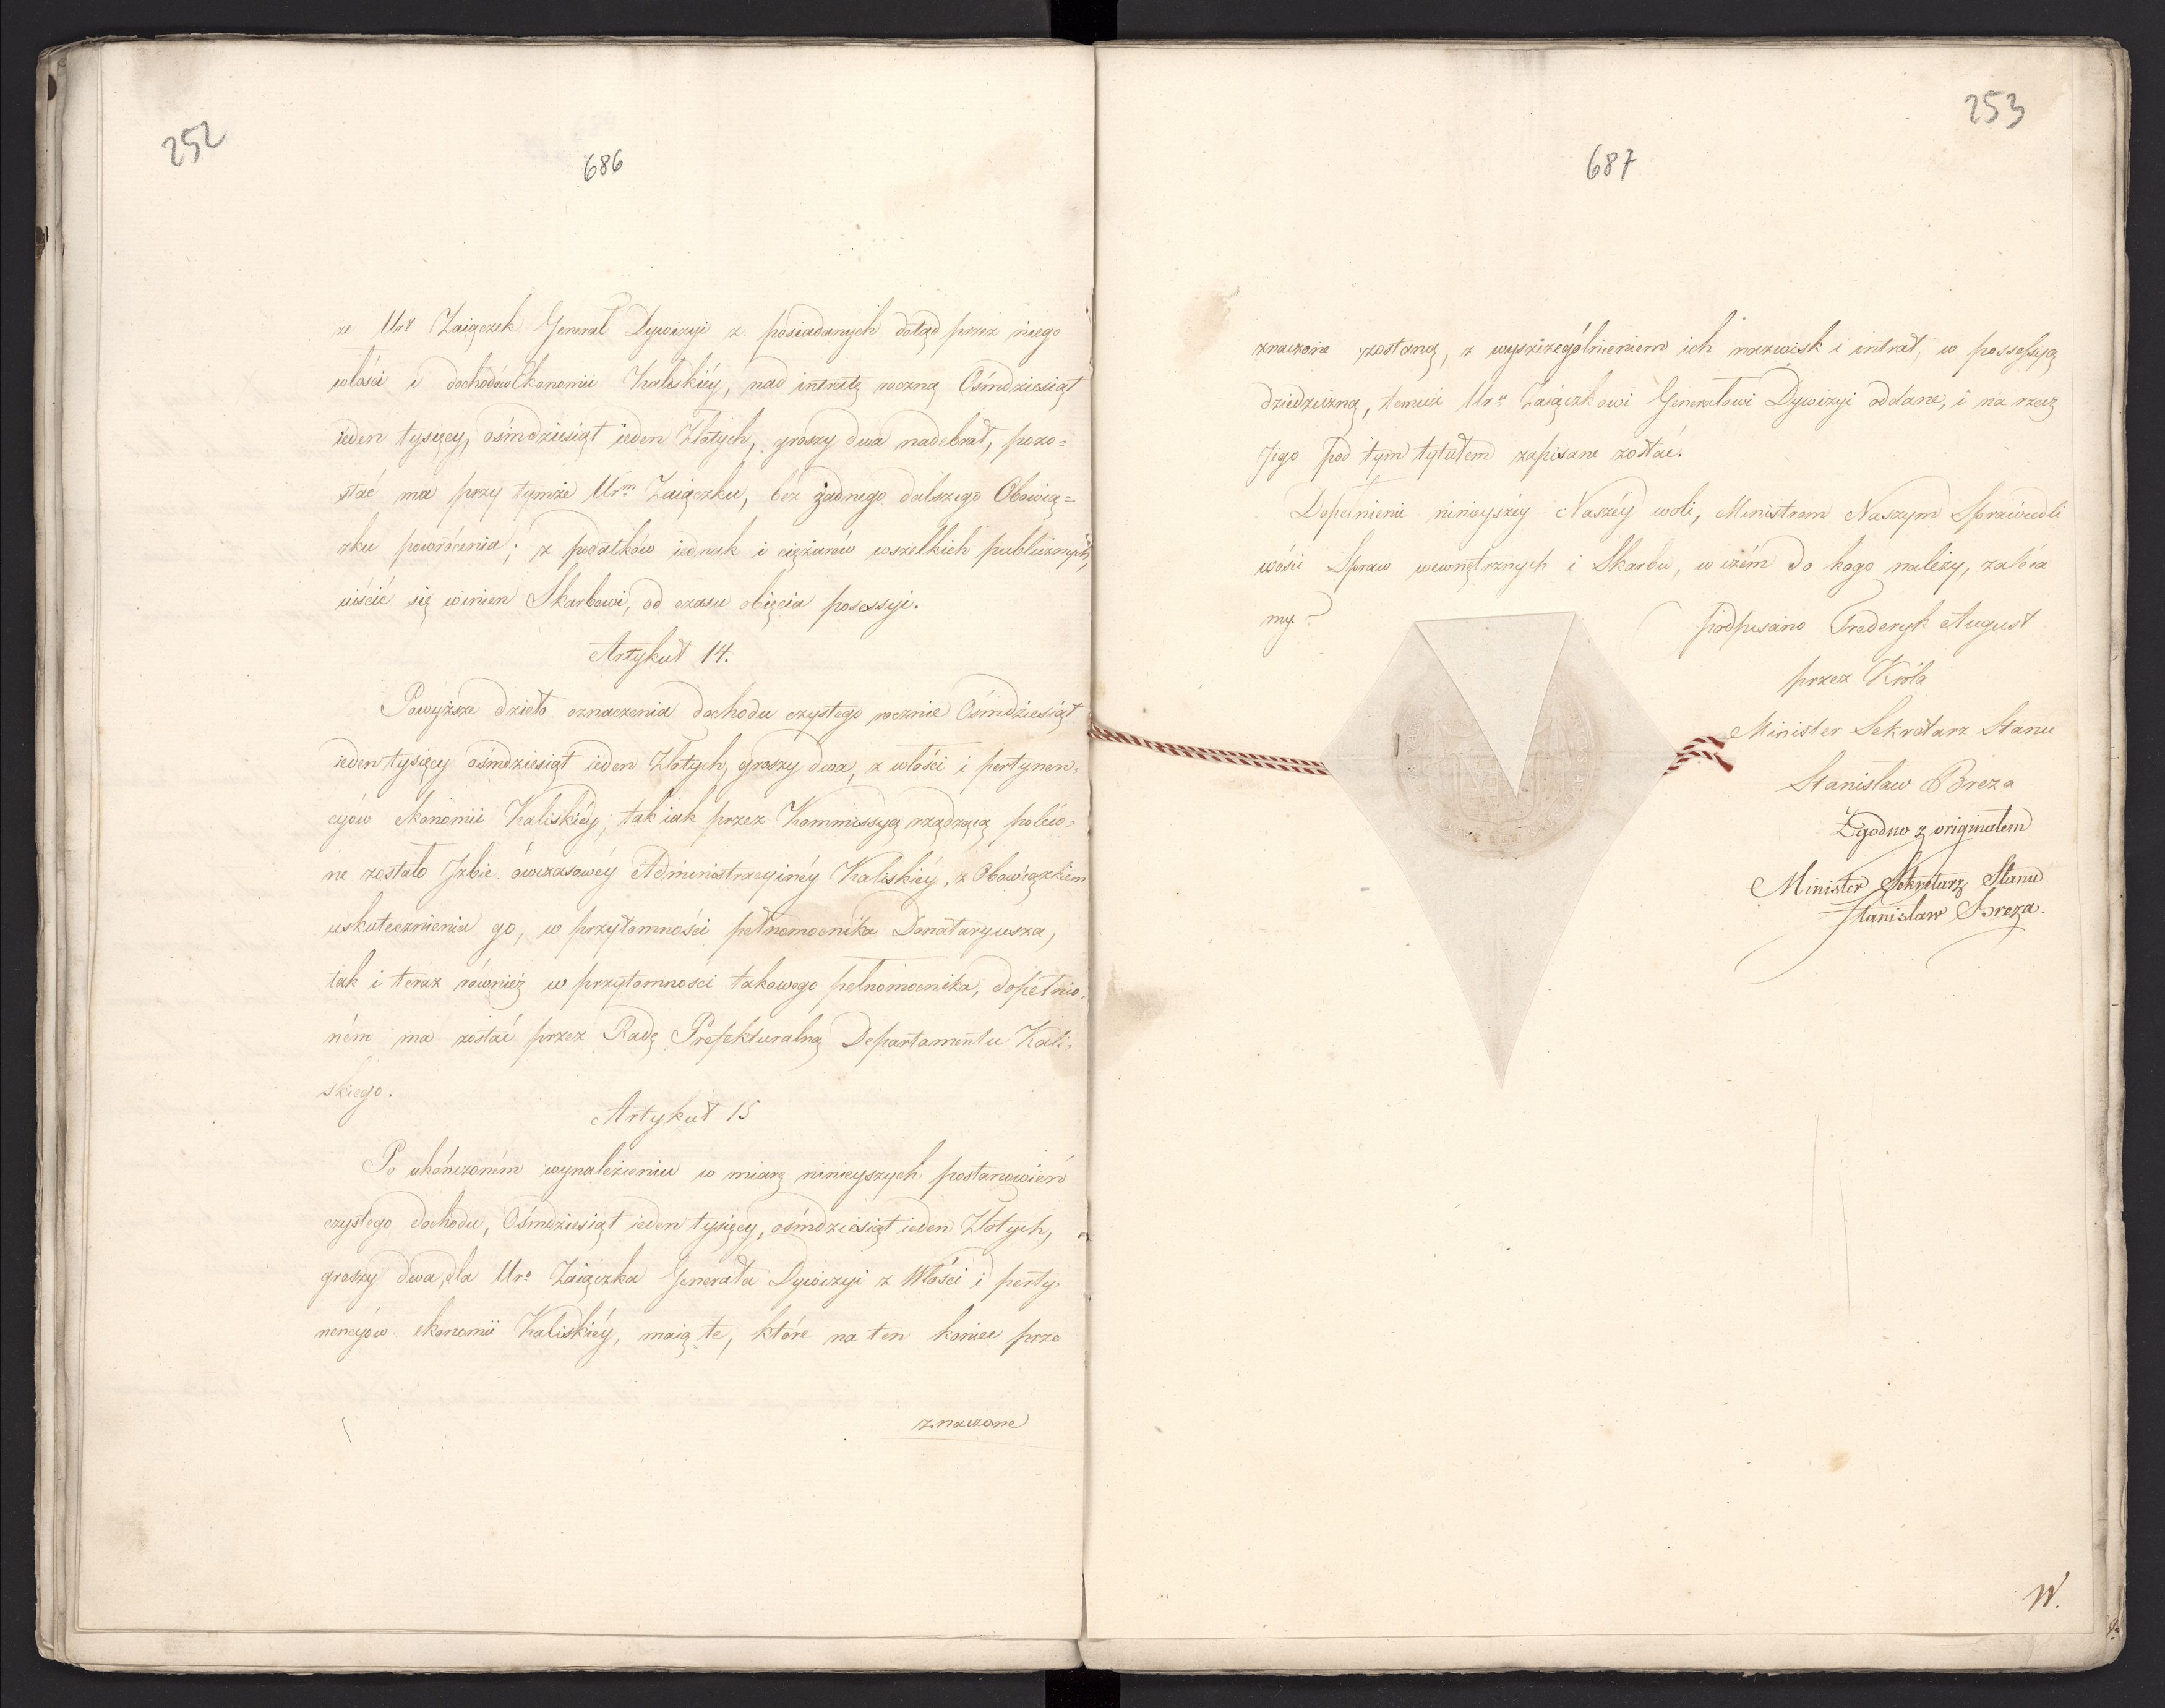 252
686
że Ur: Zaiączek Generał Dywizyi z posiadanych dotąd przez niego
włości i dochodów Ekonomii Kaliskiéy, nad intratę roczną Ośmdziesiąt
ieden tysięcy, ośmdziesiąt ieden Złotych, groszy dwa nadebrał, pozo=
stać ma przy tymże Urm Zaiączku, bez żadnego dalszego Obowią=
zku powrócenia; z podatków iednak i ciężarów wszelkich publicznych,
uiścić się winien Skarbowi, od czasu obięcia posessyi.
Artykuł 14.
Powyższe dzieło oznaczenia dochodu czystego rocznie Ośmdziesiąt
ieden tysięcy ośmdziesiąt ieden Złotych, groszy dwa, z włości i pertynen=
cyów ekonomii Kaliskiéy, tak iak przez Kommissyą rządzącą poleco=
ne zostało Izbie ówczasowéy Administracyinéy Kaliskiéy, z Obowiązkiem
uskutecznienia go, w przytomności pełnomocnika Donataryusza,
tak i teraz również w przytomności takowego pełnomocnika, dopełnio=
ném ma zostać przez Radę Prefekturalną Departamentu Kali=
skiego.
Artykuł 15
Po ukończoném wynalezieniu w miarę ninieyszych postanowień
czystego dochodu, Ośmdziesiąt ieden tysięcy, ośmdziesiąt ieden Złotych,
groszy dwa, dla Ur: Zaiączka Generała Dywizyi z Włości i perty=
nencyów ekonomii Kaliskiéy, maią te, które na ten koniec prze
znaczone
253
687
znaczone zostaną, z wyszczególnieniem ich nazwisk i intrat, w possessyą
dziedziczną, temuż Ur: Zaiączkowi Generałowi Dywizyi oddane, i na rzecz
Jego pod tym tytułem zapisane zostać.
Dopełnienie ninieyszéy Naszéy woli, Ministrom Naszym Sprawiedli
wości Spraw wewnętrznych i Skarbu, w czém do kogo należy, zaleca
my.
podpisano Frederyk August
przez Króla
Minister Sekretarz Stanu
Stanisław Breza
Zgodno z originałem
Minister Sekretarz Stanu
Stanisław Breza.
W.